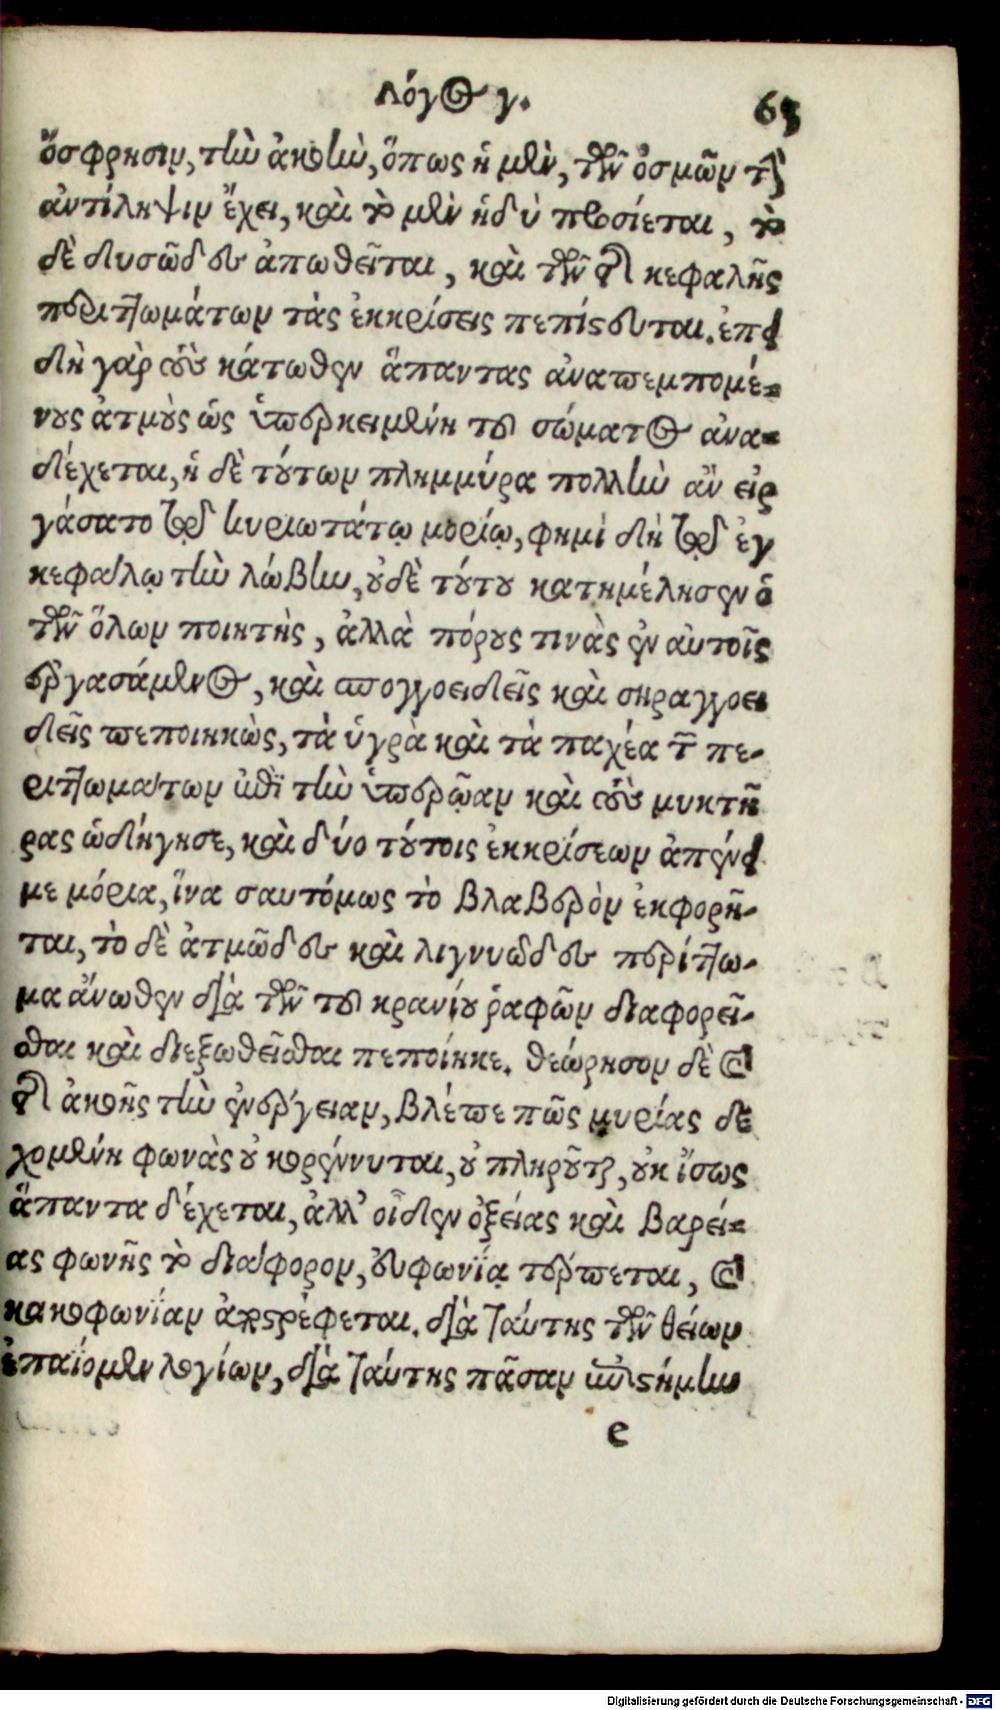 Λόγος γ. 65
ὄσφρησιν, τὴν ἀκοὴν, ὅπως ἡ μὲν, τῶν ὀσμῶν τὴν
ἀντίληψιν ἔχει, καὶ τὸ μὲν ἡδὺ προσίεται, τὸ
δὲ δυσῶδες ἀπωθεῖται, καὶ τῶν τῆς κεφαλῆς
περιττωμάτων τὰς ἐκκρίσεις πεπίστευται. ἐπει
δὴ γὰρ τοὺς κάτωθεν ἅπαντας ἀναπεμπομέ-
νους ἀτμοὺς ὡς ὑπερκειμένη τοῦ σώματος ἀνα-
δέχεται, ἡ δὲ τούτων πλημμύρα πολλὴν ἂν εἰρ
γάσατο τῷ κυριωτάτῳ μορίῳ, φημὶ δὴ τῷ ἐγ
κεφάλῳ τὴν λώβην, οὐδὲ τούτου κατημέλησεν ὁ
τῶν ὅλων ποιητὴς, ἀλλὰ πόρους τινὰς ἐν αὐτοῖς
ἐργασάμενος, καὶ σπογγοειδεῖς καὶ σηραγγοει
δεῖς πεποιηκὼς, τὰ ὑγρὰ καὶ τὰ παχέα τῶν πε-
ριττωμάτων ἐπὶ τὴν ὑπερῴαν καὶ τοὺς μυκτῆ
ρας ὡδήγησε, καὶ δύο τούτοις ἐκκρίσεων ἀπένει
με μόρια, ἵνα σαυτόμως τὸ βλαβερὸν ἐκφορῆ-
ται, τὸ δὲ ἀτμῶδες καὶ λιγνυῶδες περίττω-
μα ἄνωθεν διὰ τῶν τοῦ κρανίου ῥαφῶν διαφορεῖ-
σθαι καὶ διεξωθεῖσθαι πεποίηκε. θεώρησον δὲ καὶ
τῆς ἀκοῆς τὴν ἐνέργειαν, βλέπε πῶς μυρίας δε
χομένη φωνὰς οὐ κορέννυται, οὐ πληροῦται, οὐκ ἴσως
ἅπαντα δέχεται, ἀλλ' οἶδεν ὀξείας καὶ βαρεί-
ας φωνῆς τὸ διάφορον, εὐφωνίᾳ τέρπεται, καὶ
κακοφωνίαν ἀποστρέφεται. διὰ ταύτης τῶν θείων
ἐπαΐομεν λογίων, διὰ ταύτης πᾶσαν ἐπιστήμην
e
Digitalisierung gefördert durch die Deutsche Forschungsgemeinschaft - DFG